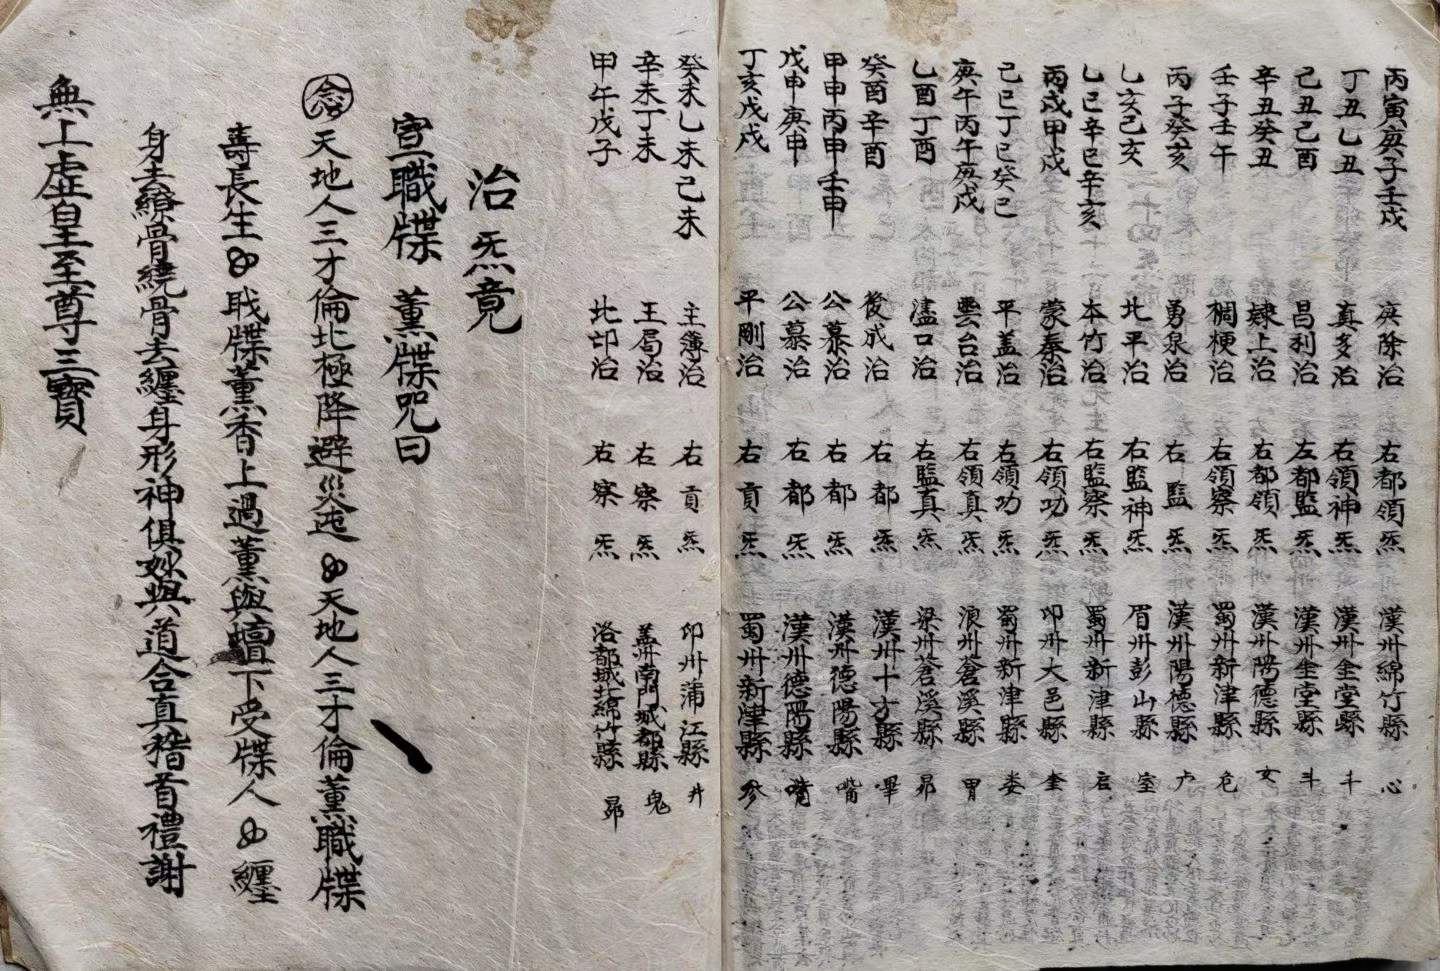 丙寅庚子壬戌 庚除治 右都領炁 漢州綿竹縣 心
丁丑乙丑 真多治 右領神炁 漢州金堂縣 斗
己丑己酉 昌利治 左都監炁 漢州金堂縣 斗
辛丑癸丑 隸上治 右都領炁 漢州陽德縣 女
壬子壬午 稠梗治 右領察炁 蜀州新津縣 危
丙子癸亥 勇泉治 右監炁 漢州陽德縣
乙亥己亥 北平治 右監神炁 眉州彭山縣 室
乙巳辛巳辛亥 本竹治 右監察炁 蜀州新津縣
丙戌甲戌 蒙秦治 右領功炁 卬州大邑縣 奎
己巳丁巳癸巳 平盖治 右領功炁 蜀州新津縣 娄
庚午丙午庚戌 雲台治 右領真炁 浪州蒼溪縣 胃
乙酉丁酉 濜口治 右監真炁 梁州蒼溪縣 昴
癸酉辛酉 後成治 右都炁 漢州十方縣 畢
甲申丙申壬申 公慕治 右都炁 漢州德陽縣 嘴
戊申庚申 公慕治 右都炁 漢州德陽縣 嘴
丁亥戊戌 平剛治 右貢炁 蜀州新津縣 參
癸未乙未己未 主簿治 右貢炁 卬州蒲江縣 井
辛未丁未 王局治 右察炁 盖州南門城都縣 鬼
甲午戊子 北邙治 右察炁 洛都城北綿竹縣 昴
治炁竟
宣職牒 薰牒咒曰
念 天地人三才倫北極降避災迍 天地人三才倫薰職牒
壽長生 戝牒薰香上過薰與壇下受牒人 纏
身去繚骨繞骨去纏身形神俱妙與道合真稽首禮謝
無上虛皇至尊三寶